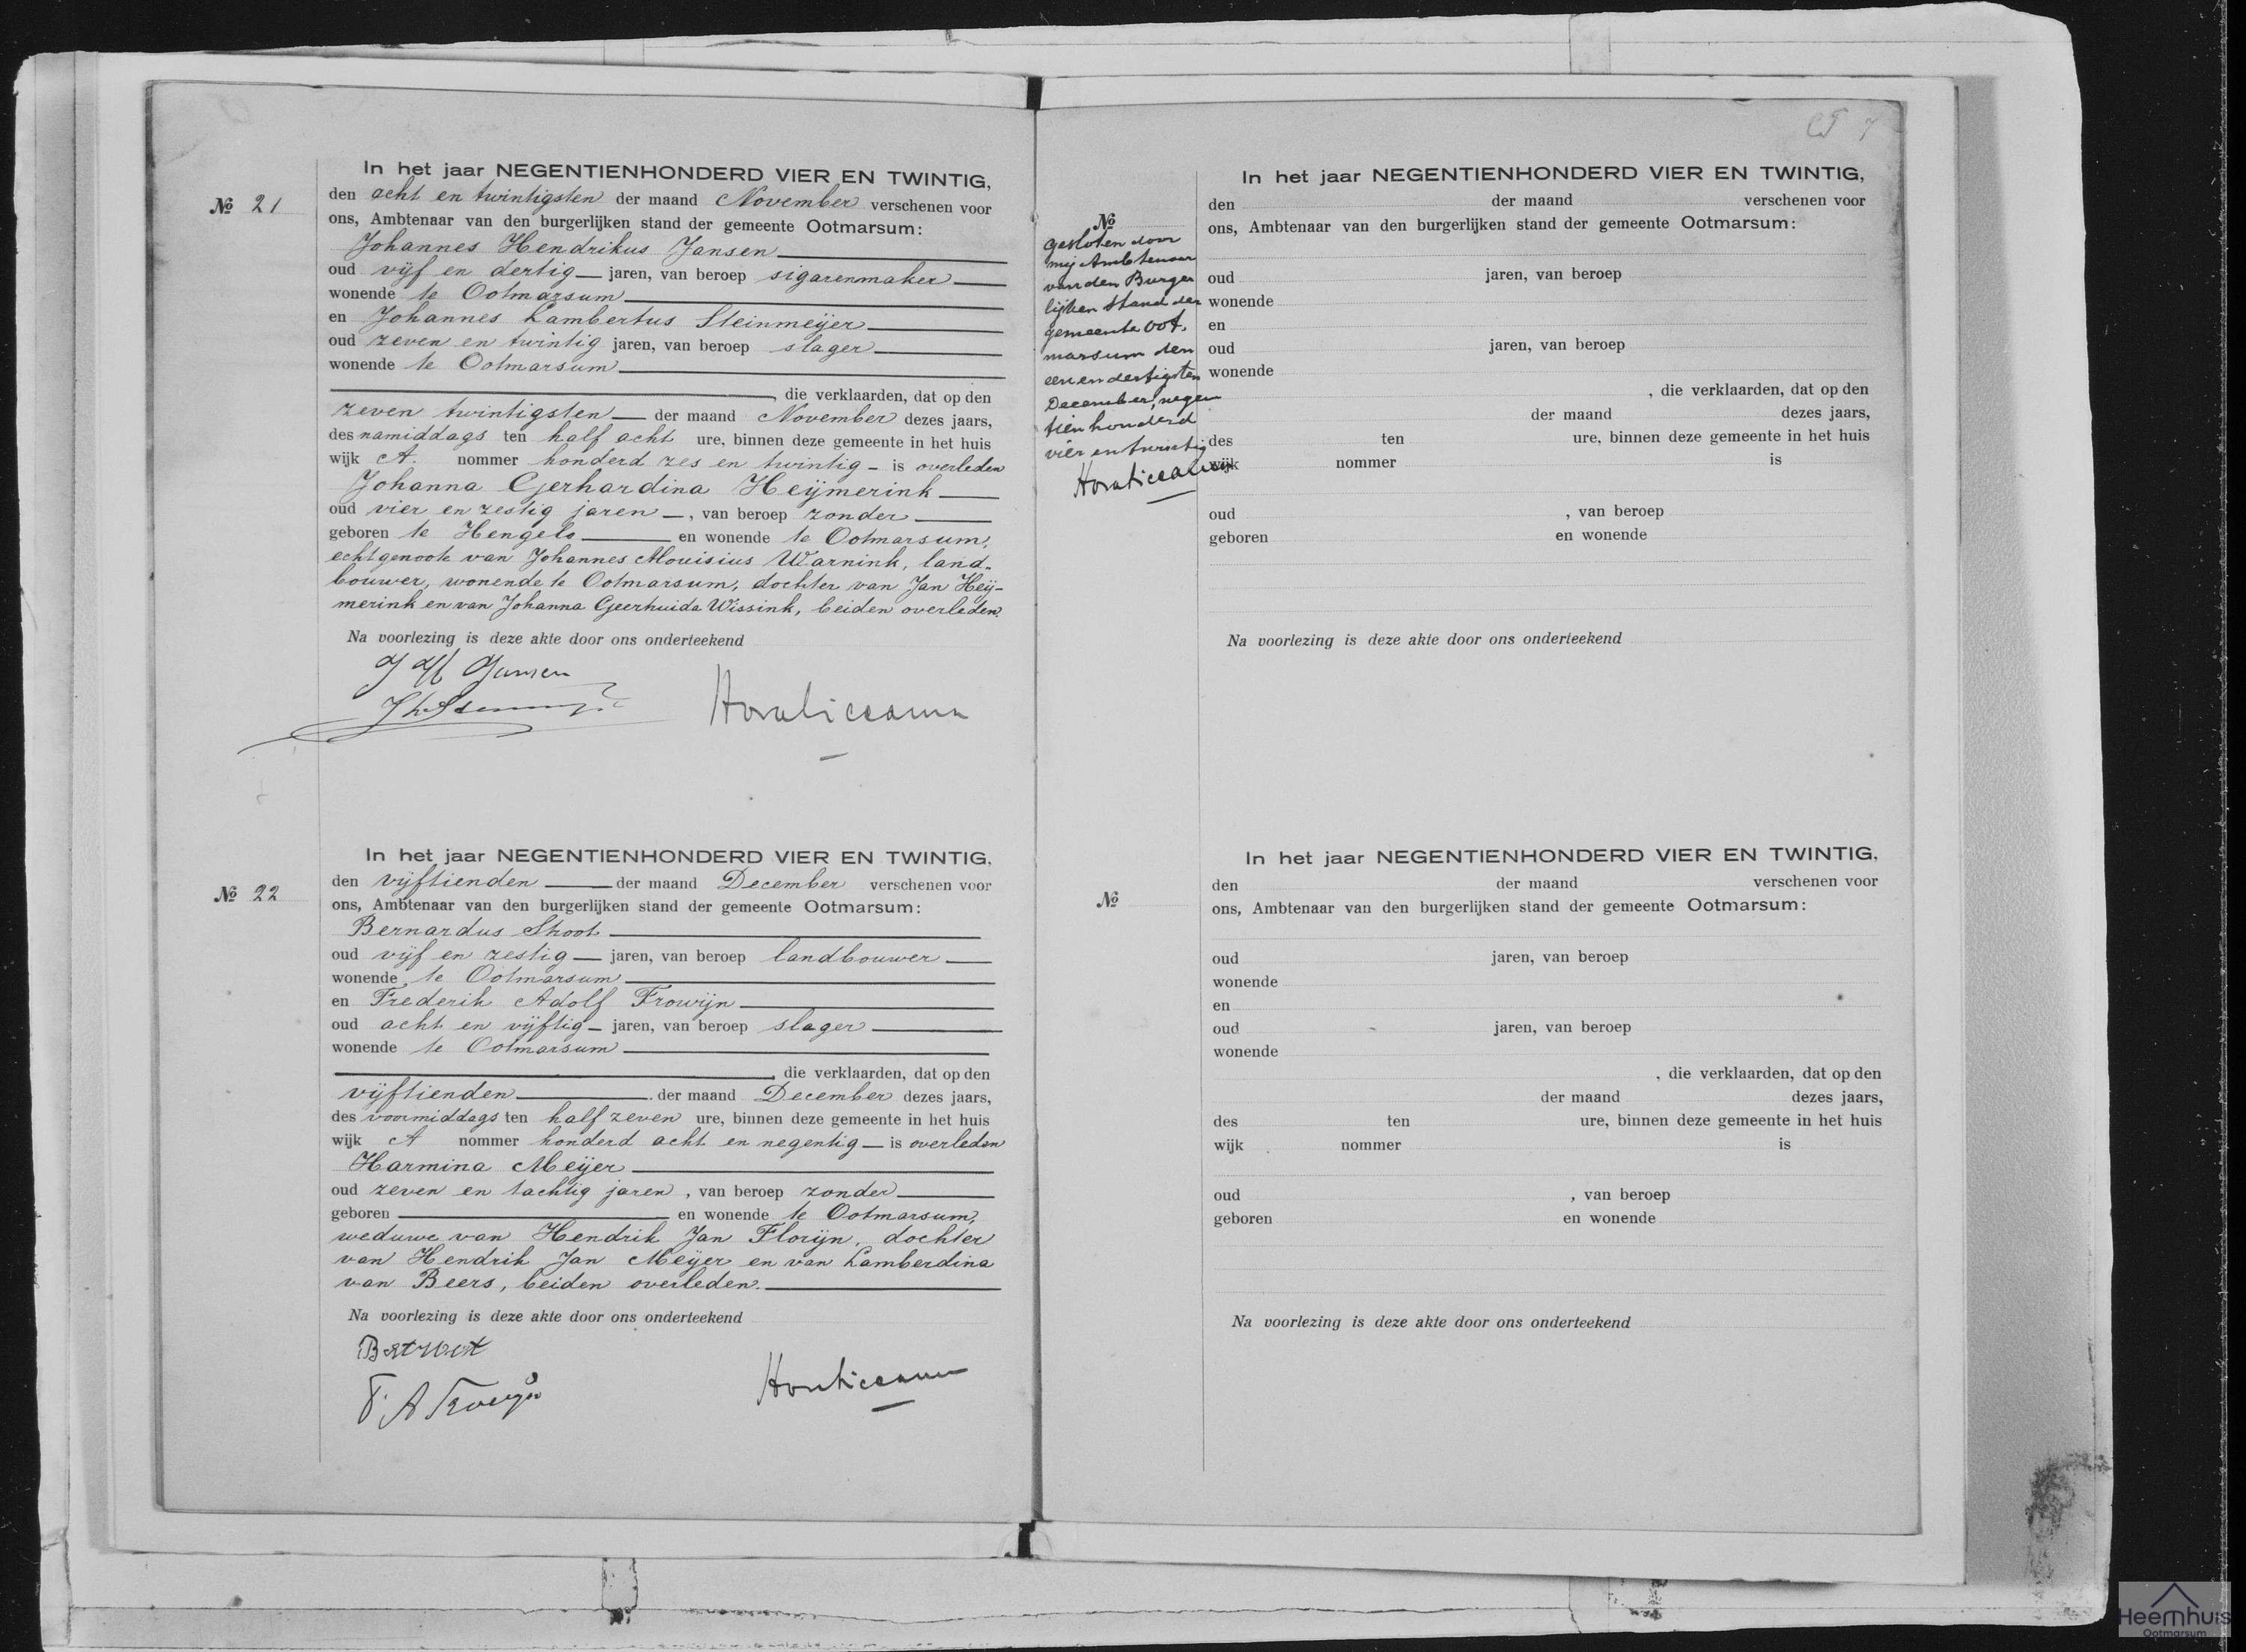 In het jaar NEGENTIENHONDERD VIER EN TWINTIG,
№ 21
den acht en twintigsten der maand November verschenen voor
ons, Ambtenaar van den burgerlijken stand der gemeente Ootmarsum:
Johannes Hendrikus Jansen
oud vijf en dertig jaren, van beroep sigarenmaker
wonende te Ootmarsum
en Johannes Lambertus Steinmeijer
oud zeven en twintig jaren, van beroep slager
wonende te Ootmarsum
, die verklaarden, dat op den
zeven twintigsten der maand November dezes jaars,
des namiddags ten half acht ure, binnen deze gemeente in het huis
wijk A. nommer honderd zes en twintig is overleden
Johanna Gerhardina Heijmerink
oud vier en zestig jaren, van beroep zonder
geboren te Hengelo en wonende te Ootmarsum,
echtgenoote van Johannes Alouisius Warnink, land-
bouwer, wonende te Ootmarsum, dochter van Jan Heij-
merink en van Johanna Geerhuida Wissink, beiden overleden.
Na voorlezing is deze akte door ons onderteekend
J H Jansen
In het jaar NEGENTIENHONDERD VIER EN TWINTIG,
№ 22
den vijftienden der maand December verschenen voor
ons, Ambtenaar van den burgerlijken stand der gemeente Ootmarsum:
Bernardus Stroot
oud vijf en zestig jaren, van beroep landbouwer
wonende te Ootmarsum
en Frederik Adolf Frowijn
oud acht en vijftig jaren, van beroep slager
wonende te Ootmarsum
, die verklaarden, dat op den
vijftienden der maand December dezes jaars,
des voormiddags ten half zeven ure, binnen deze gemeente in het huis
wijk A nommer honderd acht en negentig is overleden
Harmina Meijer
oud zeven en tachtig jaren, van beroep zonder
geboren en wonende te Ootmarsum,
weduwe van Hendrik Jan Florijn, dochter
van Hendrik Jan Meijer en van Lamberdina
van Beers, beiden overleden.
Na voorlezing is deze akte door ons onderteekend
B Stroot
F. A Frowijn
7
In het jaar NEGENTIENHONDERD VIER EN TWINTIG,
den der maand verschenen voor
№
ons, Ambtenaar van den burgerlijken stand der gemeente Ootmarsum:
gesloten door
mij Ambtenaar
van den Burger
lijken Stand der
gemeente Oot.
marsum den
een en dertigsten
December, negen
tien honderd
vier en twintig
oud jaren, van beroep
wonende
en
oud jaren, van beroep
wonende
, die verklaarden, dat op den
der maand dezes jaars,
des ten ure, binnen deze gemeente in het huis
wijk nommer is
oud , van beroep
geboren en wonende
Na voorlezing is deze akte door ons onderteekend
In het jaar NEGENTIENHONDERD VIER EN TWINTIG,
den der maand verschenen voor
№
ons, Ambtenaar van den burgerlijken stand der gemeente Ootmarsum:
oud jaren, van beroep
wonende
en
oud jaren, van beroep
wonende
, die verklaarden, dat op den
der maand dezes jaars,
des ten ure, binnen deze gemeente in het huis
wijk nommer is
oud , van beroep
geboren en wonende
Na voorlezing is deze akte door ons onderteekend
Heemhuis
Ootmarsum